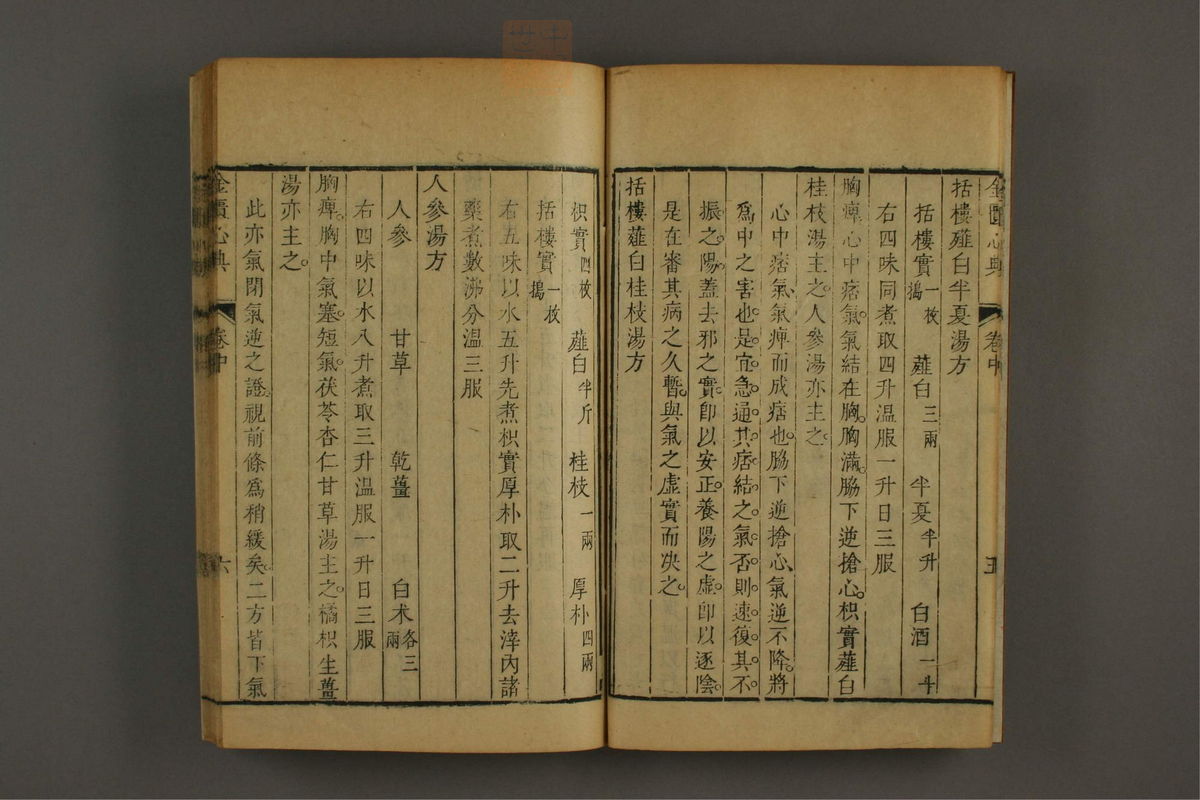 金匱心典　卷中　五
括樓薤白半夏湯方
括樓實一枚搗　薤白三兩　半夏半升　白酒一斗
右四味同煮取四升温服一升日三服
胸痺心中痞氣氣結在胸胸滿脇下逆搶心枳實薤白
桂枝湯主之人參湯亦主之
心中痞氣氣痺而成痞也脇下逆搶心氣逆不降將
爲中之害也是宜急通其痞結之氣否則速復其不
振之陽蓋去邪之實卽以安正養陽之虛卽以逐陰
是在審其病之久暫與氣之虛實而决之
括樓薤白桂枝湯方
枳實四枚　薤白半斤　桂枝一兩　厚朴四兩
括樓實一枚搗
右五味以水五升先煮枳實厚朴取二升去滓內諸
藥煮數沸分温三服
人參湯方
人參　甘草　乾薑　白术各三兩
右四味以水八升煮取三升温服一升日三服
胸痺胸中氣塞短氣茯苓杏仁甘草湯主之橘枳生薑
湯亦主之
此亦氣閉氣逆之證視前條爲稍緩矣二方皆下氣
金匱心典　卷中　六